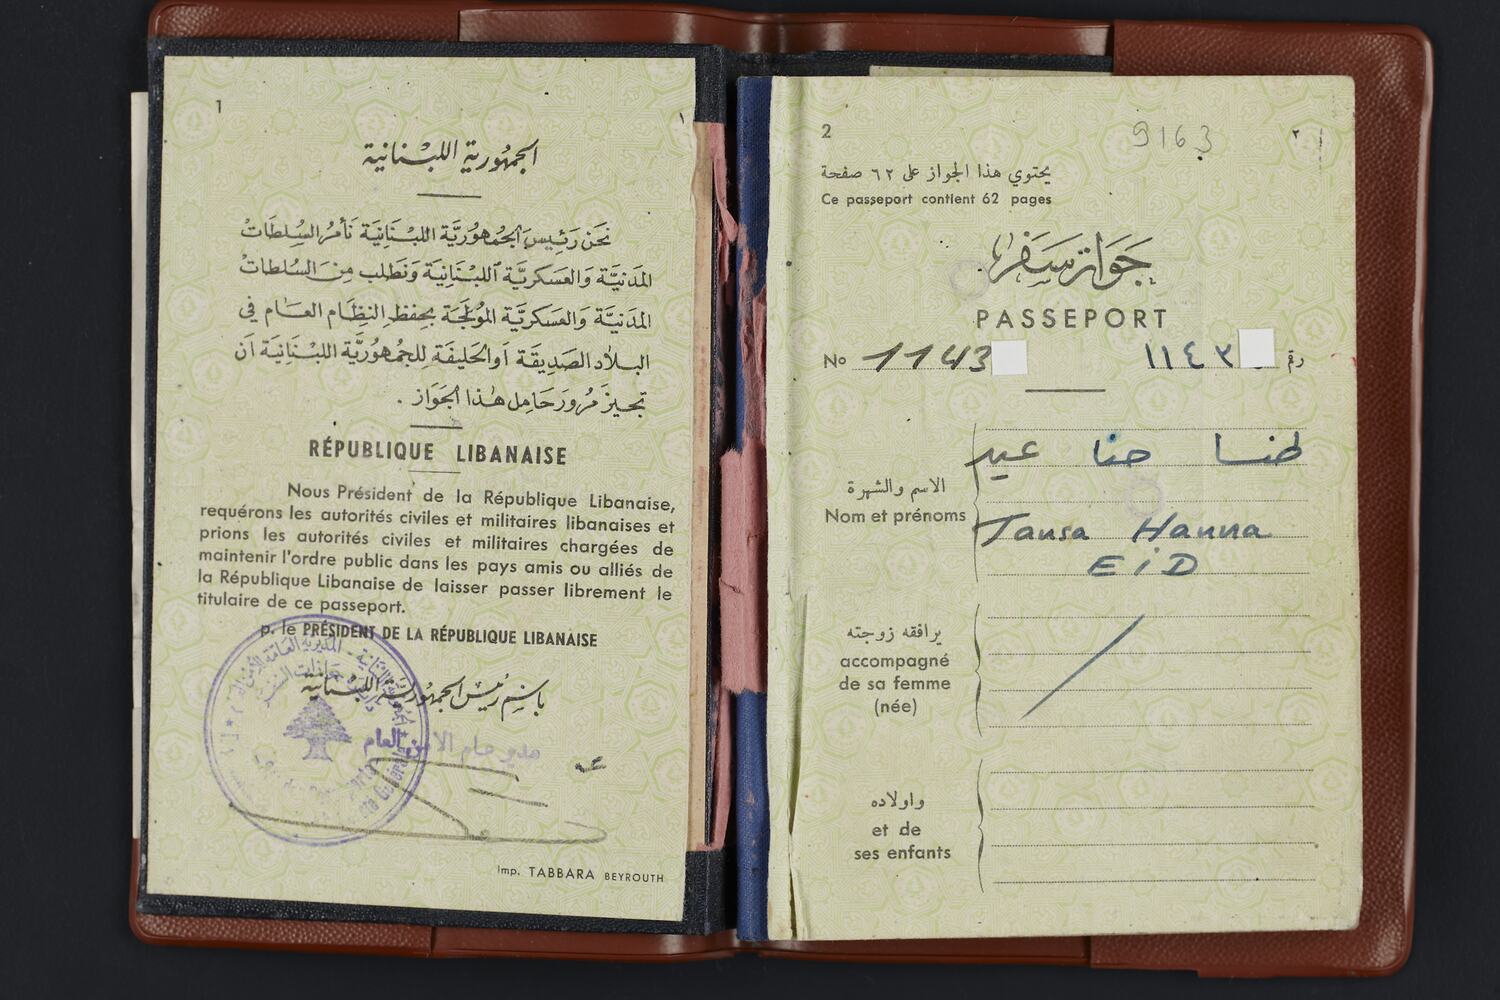 1
١
الجمهورية اللبنانية
نحن رئيس الجمهورية اللبنانية نأمر السلطات
المدنية والعسكرية اللبنانية ونطلب من السلطات
المدنية والعسكرية المولجة بحفظ النظام العام في
البلاد الصديقة أو الحليفة للجمهورية اللبنانية ان
تجيز مرور حامل هذا الجواز .
RÉPUBLIQUE LIBANAISE
Nous Président de la République Libanaise,
requérons les autorités civiles et militaires libanaises et
prions les autorités civiles et militaires chargées de
maintenir l'ordre public dans les pays amis ou alliés de
la République Libanaise de laisser passer librement le
titulaire de ce passeport.
p. le PRÉSIDENT DE LA RÉPUBLIQUE LIBANAISE
باسم رئيس الجمهورية اللبنانية
مدير عام الامن العام
Imp. TABBARA BEYROUTH
2
9163
٢
يحتوي هذا الجواز على ٦٢ صفحة
Ce passeport contient 62 pages
جواز سفر
PASSEPORT
No 1143
١١٤٣ رقم
طنسا حنا عيد
الاسم والشهرة
Nom et prénoms
Tansa Hanna
EiD
يرافقه زوجته
accompagné
de sa femme
(née)
واولاده
et de
ses enfants